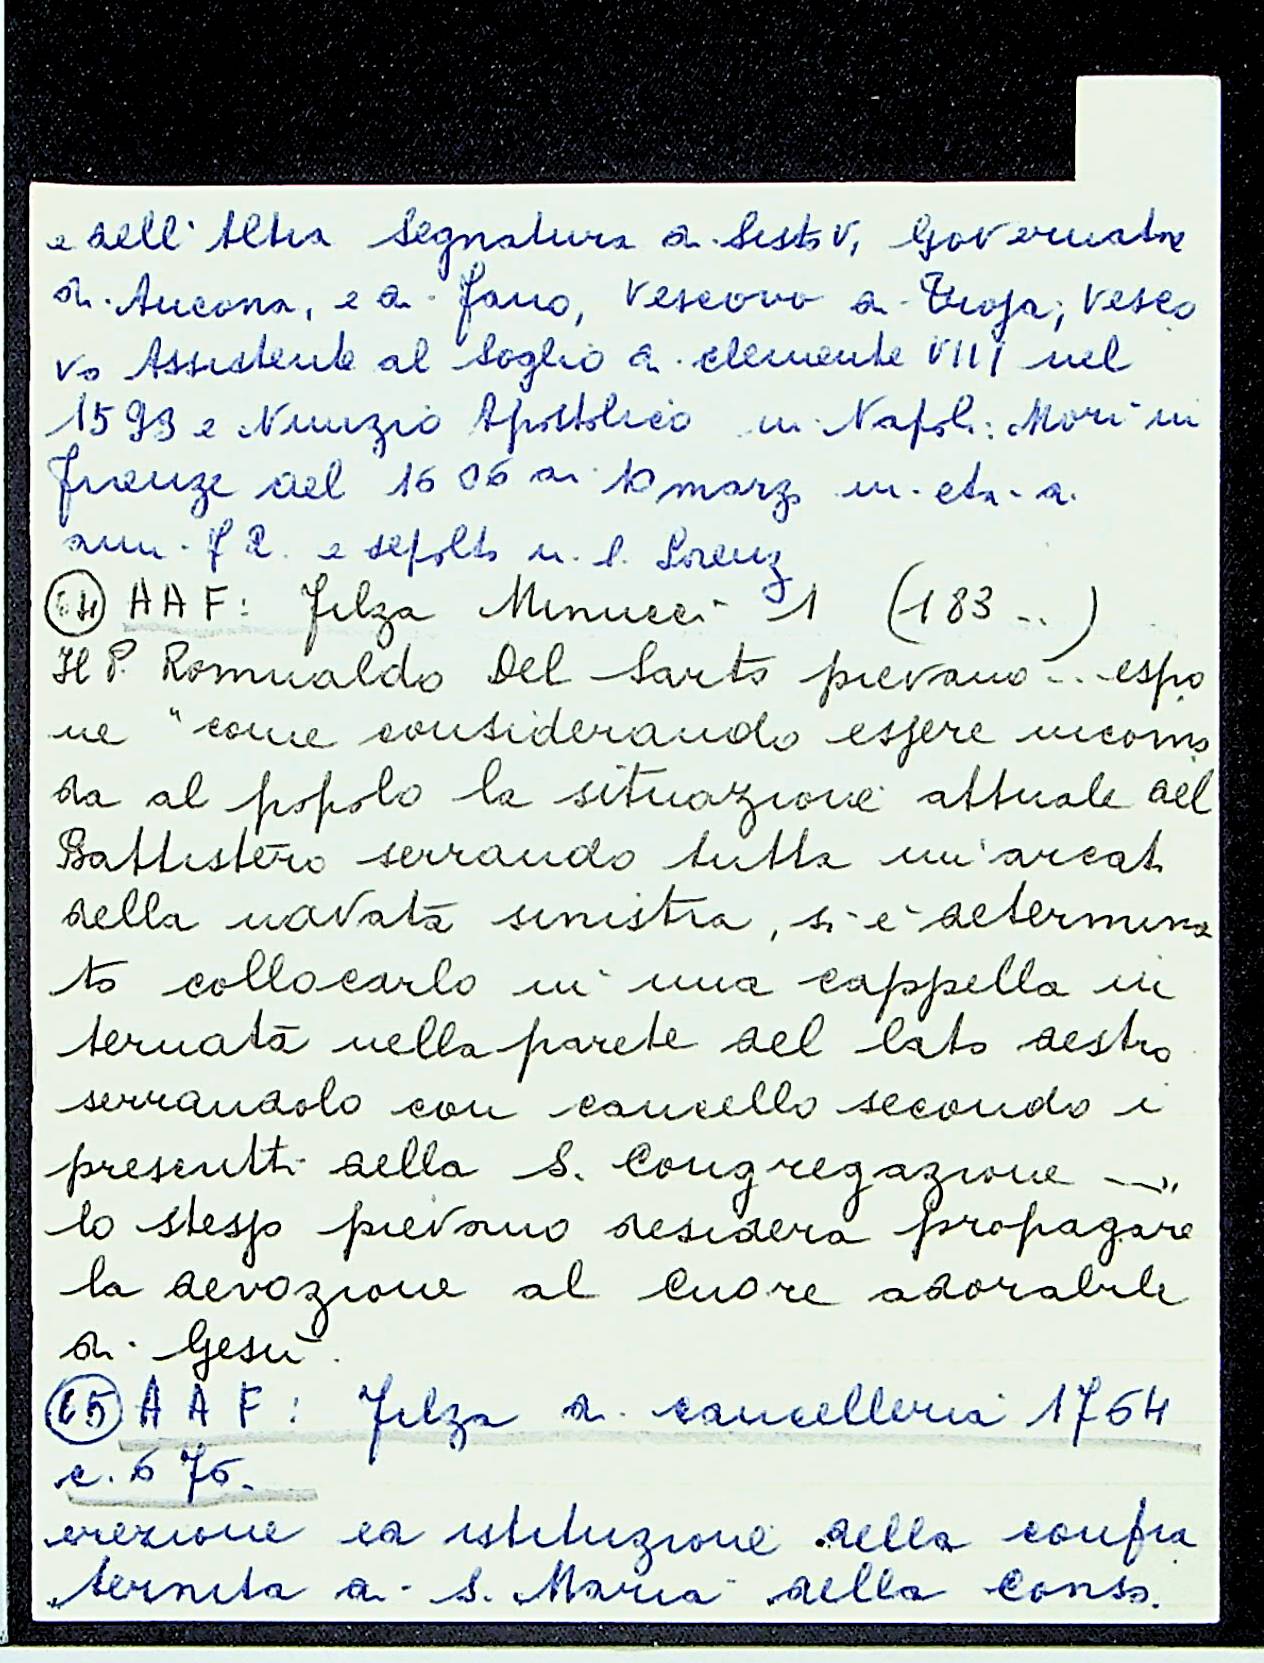 e dell'Altra Segnatura di Sisto V, Governatore
di Ancona, e di Fano, Vescovo di Troja; Vesco
vo Assistente al Soglio di Clemente VIII nel
1593 e Nunzio Apostolico in Napoli: Morì in
Firenze del 1606 di 10 marzo in età di
ann. 72. e sepolto in S. Lorenz
64 AAF: Filza Minucci 1 (183...)
Il P. Romualdo Del Sarto pievano... espo
ne "come considerando essere incomo
da al popolo la situazione attuale del
Battistero serrando tutta un'arcata
della navata sinistra, si è determina
to collocarlo in una cappella in
ternata nella parete del lato destro
serrandolo con cancello secondo i
prescritti della S. Congregazione ..."
lo stesso pievano desidera propagare
la devozione al Cuore adorabile
di Gesù.
65 AAF: Filza di cancelleria 1764
c. 676.
erezione ed istituzione della confra
ternita di S. Maria della Conso.